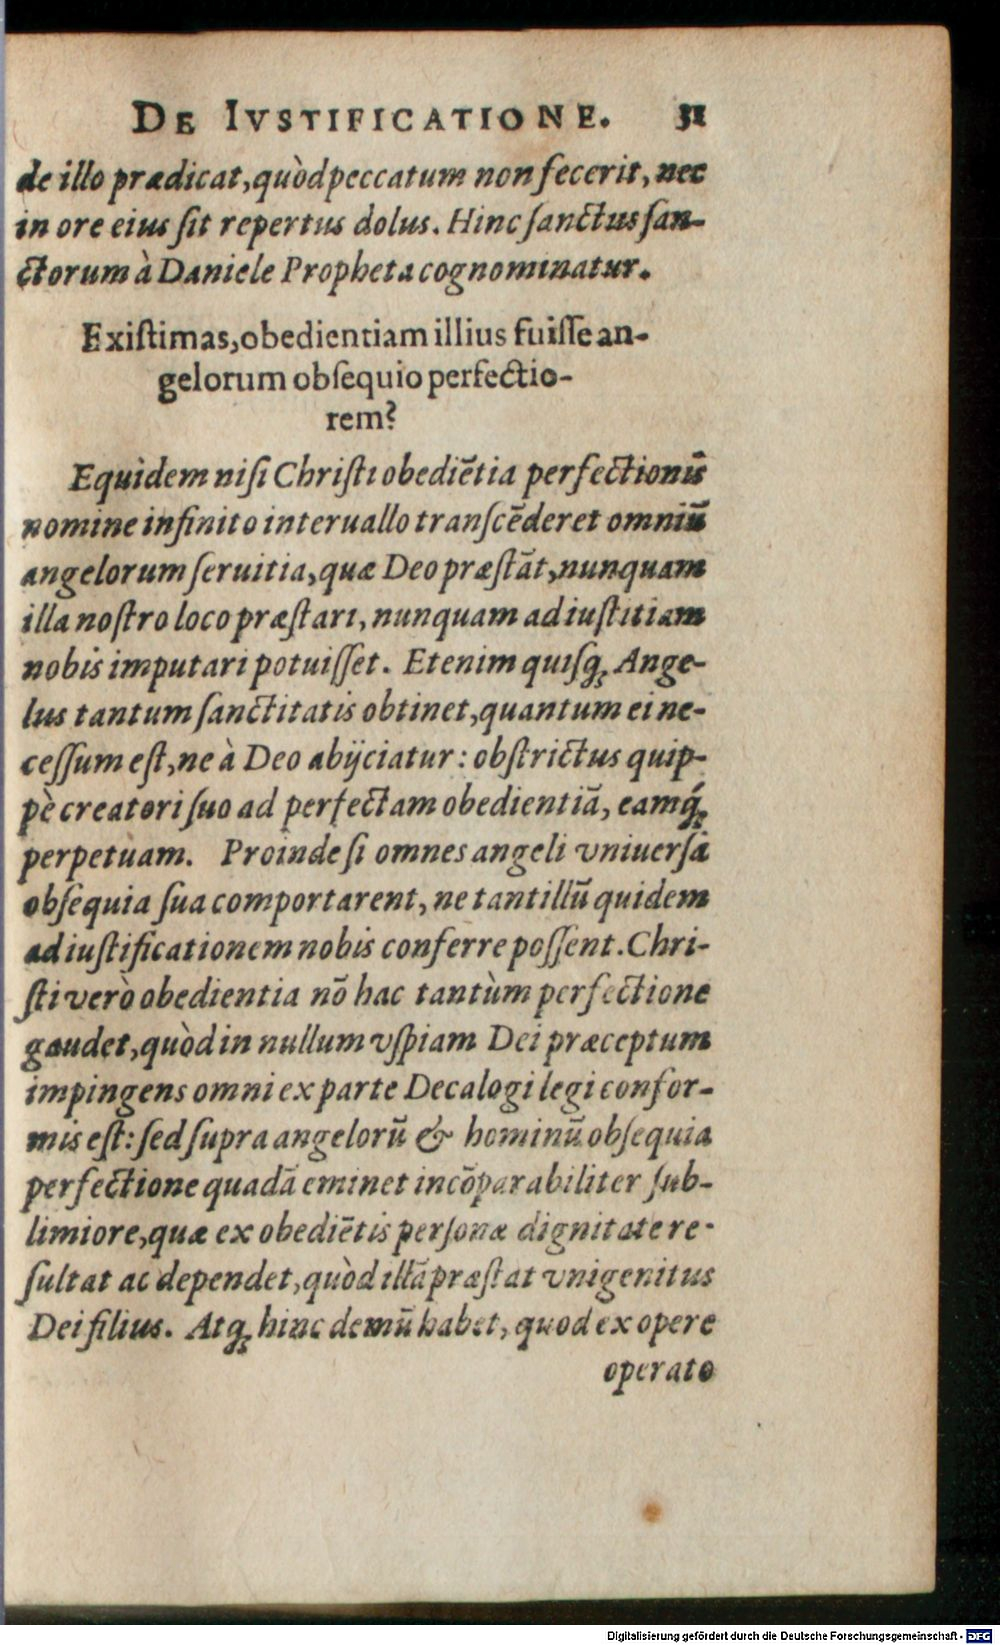 DE IVSTIFICATIONE. 31
de illo prædicat, quòd peccatum non fecerit, nec
in ore eius ſit repertus dolus. Hinc ſanctus ſan-
ctorum à Daniele Propheta cognominatur.
Exiſtimas, obedientiam illius fuiſſe an-
gelorum obſequio perfectio-
rem?
Equidem niſi Chriſti obediẽtia perfectionis
nomine infinito interuallo tranſcẽderet omniũ
angelorum ſeruitia, quæ Deo præſtãt, nunquam
illa noſtro loco præſtari, nunquam ad iuſtitiam
nobis imputari potuiſſet. Etenim quiſq; Ange-
lus tantum ſanctitatis obtinet, quantum ei ne-
ceſſum eſt, ne à Deo abijciatur: obſtrictus quip-
pè creatori ſuo ad perfectam obedientiã, eamq́;
perpetuam. Proinde ſi omnes angeli vniuerſa
obſequia ſua comportarent, ne tantillũ quidem
ad iuſtificationem nobis conferre poſſent. Chri-
ſti verò obedientia nõ hac tantùm perfectione
gaudet, quòd in nullum vſpiam Dei præceptum
impingens omni ex parte Decalogi legi confor-
mis eſt: ſed ſupra angelorũ & hominũ obſequia
perfectione quadã eminet incõparabiliter ſub-
limiore, quæ ex obediẽtis perſonæ dignitate re-
ſultat ac dependet, quòd illã præſtat vnigenitus
Dei filius. Atq; hinc demũ habet, quod ex opere
operato
Digitalisierung gefördert durch die Deutsche Forschungsgemeinschaft - DFG